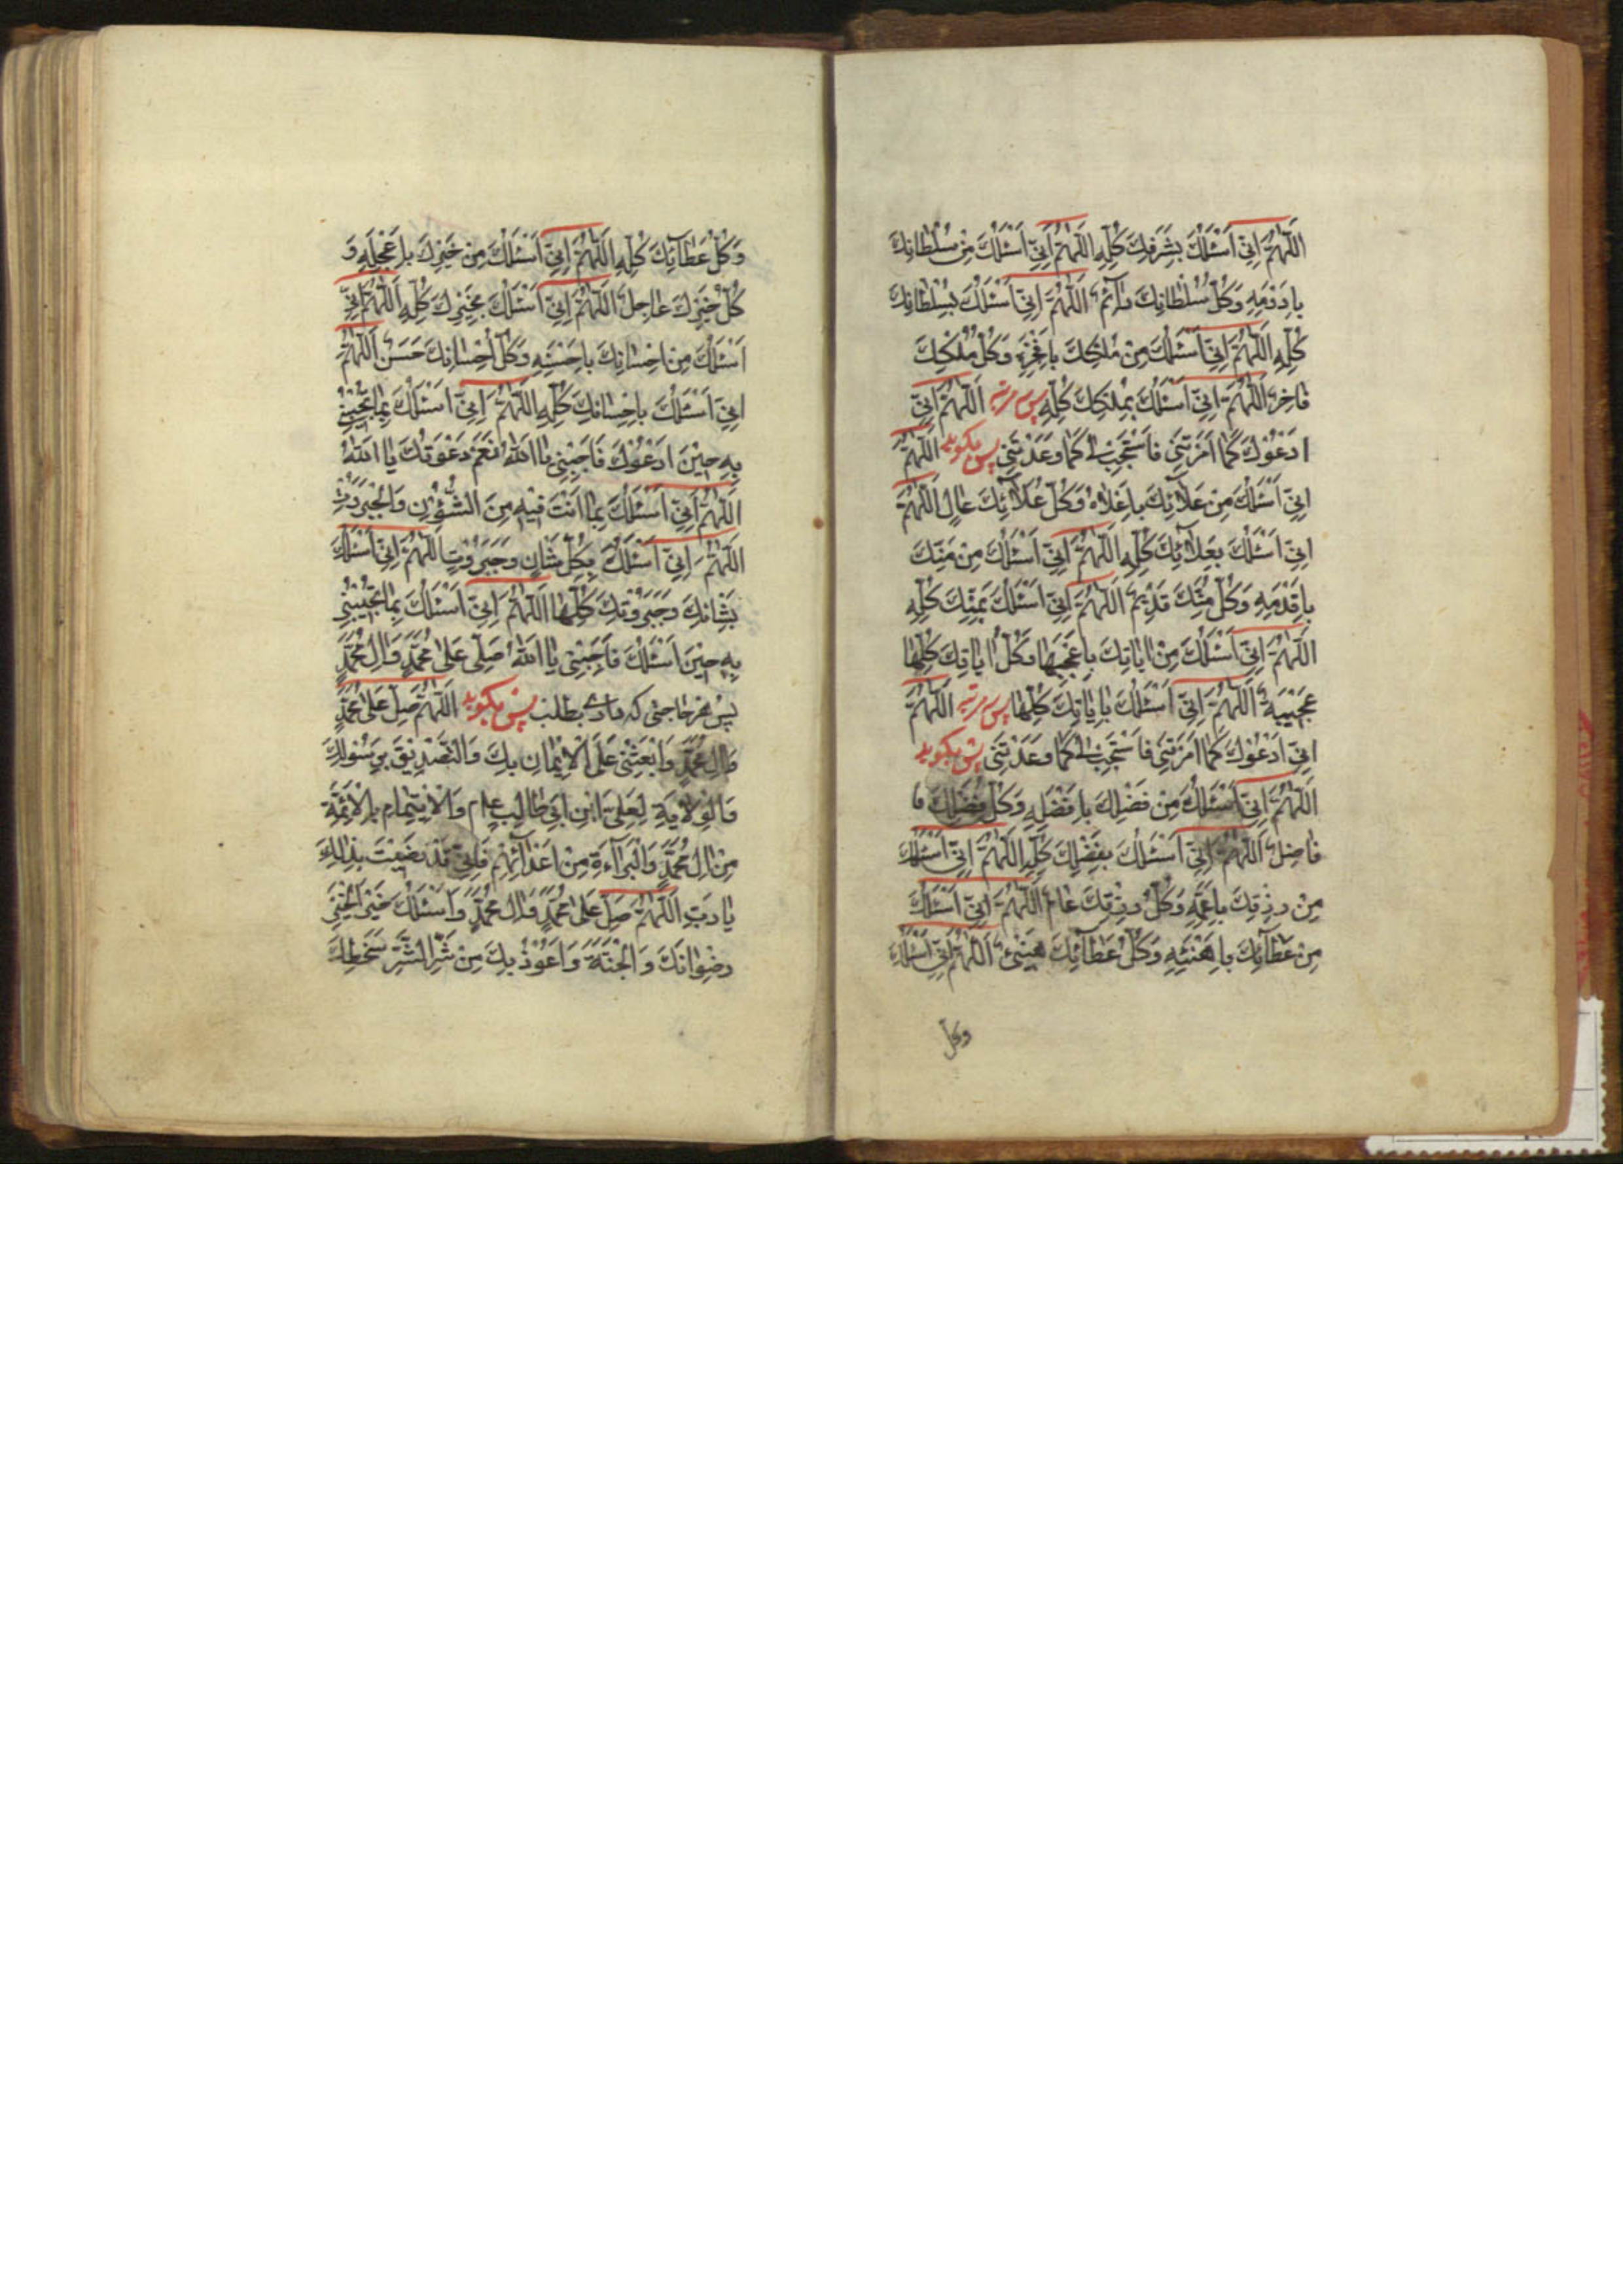 اللّٰهُمَّ اِنّى اَسْئَلُكَ بِشَرَفِكَ كُلِّهِ اللّٰهُمَّ اِنّى اَسْئَلُكَ مِنْ سُلْطانِكَ
بِاَدْوَمِهِ وَكُلُّ سُلْطانِكَ دآئم اللّٰهُمَّ اِنّى اَسْئَلُكَ بِسُلْطانِكَ
كُلِّهِ اللّٰهُمَّ اِنّى اَسْئَلُكَ مِنْ مُلْكِكَ بِاَفْخَرِهِ وَكُلُّ مُلْكِكَ
فاخِر اللّٰهُمَّ اِنّى اَسْئَلُكَ بِمُلْكِكَ كُلِّهِ پس سه مرتبه اللّٰهُمَّ اِنّى
اَدْعُوْكَ كَما اَمَرْتَنى فَاسْتَجِبْ لى كَما وَعَدْتَنى پس بگويد اللّٰهُمَّ
اِنّى اَسْئَلُكَ مِنْ عَلائِكَ بِاَعْلاهُ وَكُلُّ عَلآئِكَ عالٍ اللّٰهُمَّ
اِنّى اَسْئَلُكَ بِعَلآئِكَ كُلِّهِ اللّٰهُمَّ اِنّى اَسْئَلُكَ مِنْ مَنِّكَ
بِاَقْدَمِهِ وَكُلُّ مَنِّكَ قَدِيْم اللّٰهُمَّ اِنّى اَسْئَلُكَ بِمَنِّكَ كُلِّهِ
اللّٰهُمَّ اِنّى اَسْئَلُكَ مِنْ اياتِكَ بِاَعْجَبِها وَكُلُّ اياتِكَ كُلِّها
عَجيبَة اللّٰهُمَّ اِنّى اَسْئَلُكَ بِاياتِكَ كُلِّها پس سه مرتبه اللّٰهُمَّ
اِنّى اَدْعُوْكَ كَما اَمَرْتَنى فَاسْتَجِبْ لى كَما وَعَدْتَنى پس بگويد
اللّٰهُمَّ اِنّى اَسْئَلُكَ مِنْ فَضْلِكَ بِاَفْضَلِهِ وَكُلُّ فَضْلِكَ فا
فاضِل اللّٰهُمَّ اِنّى اَسْئَلُكَ بِفَضْلِكَ كُلِّهِ اللّٰهُمَّ اِنّى اَسْئَلُكَ
مِنْ رِزْقِكَ بِاَعَمِّهِ وَكُلُّ رِزْقِكَ عامّ اللّٰهُمَّ اِنّى اَسْئَلُكَ
مِنْ عَطآئِكَ بِاَهْنَئِهِ وَكُلُّ عَطآئِكَ هَنِيْئ اللّٰهُمَّ اِنّى اَسْئَلُكَ
وكل
وَكُلُّ عَطآئِكَ كُلِّهِ اللّٰهُمَّ اِنّى اَسْئَلُكَ مِنْ خَيْرِكَ بِاَعْجَلِهِ وَ
كُلُّ خَيْرِكَ عاجِل اللّٰهُمَّ اِنّى اَسْئَلُكَ بِخَيْرِكَ كُلِّهِ اللّٰهُمَّ اِنّى
اَسْئَلُكَ مِنْ اِحْسانِكَ بِاَحْسَنِهِ وَكُلُّ اِحْسانِكَ حَسَن اللّٰهُمَّ
اِنّى اَسْئَلُكَ بِاِحْسانِكَ كُلِّهِ اللّٰهُمَّ اِنّى اَسْئَلُكَ بِما تُجيْبُنى
بِهِ حِيْنَ اَدْعُوْكَ فَاَجِبْنى يا اَللّٰهُ نَعَمْ دَعَوْتُكَ يا اَللّٰهُ
اللّٰهُمَّ اِنّى اَسْئَلُكَ بِما اَنْتَ فيْهِ مِنَ الشُّؤُنِ وَالْجَبَرُوْتِ
اللّٰهُمَّ اِنّى اَسْئَلُكَ بِكُلِّ شَانٍ وَجَبَرُوْتٍ اللّٰهُمَّ اِنّى اَسْئَلُكَ
بِشَانِكَ وَجَبَرُوْتِكَ كُلِّها اللّٰهُمَّ اِنّى اَسْئَلُكَ بِما تُجيْبُنى
بِهِ حِيْنَ اَسْئَلُكَ فَاَجِبْنى يا اَللّٰهُ صَلّى عَلى مُحَمَّدٍ وَالِ مُحَمَّدٍ
پس هر حاجتى كه دارى بطلب پس بگويد اللّٰهُمَّ صَلِّ عَلى مُحَمَّدٍ
وَالِ مُحَمَّدٍ وَابْعَثْنى عَلَى الْاِيْمانِ بِكَ وَالتَّصْدِيْقِ بِرَسُوْلِكَ
وَالْوِلايَةِ لِعَلِىِّ ابْنِ اَبى طالِبٍ ع م وَالْاِيْتِمامِ بِالْاَئِمَّةِ
مِنْ الِ مُحَمَّدٍ وَالْبَرآءَةِ مِنْ اَعْدآئِهِمْ فَاِنّى قَدْ رَضيْتُ بِذلِكَ
يا رَبِّ اللّٰهُمَّ صَلِّ عَلى مُحَمَّدٍ وَالِ مُحَمَّدٍ وَاَسْئَلُكَ خَيْرَ الْخَيْرِ
رِضْوانَكَ وَالْجَنَّةَ وَاَعُوْذُ بِكَ مِنْ شَرِّ الشَّرِّ سَخَطِكَ